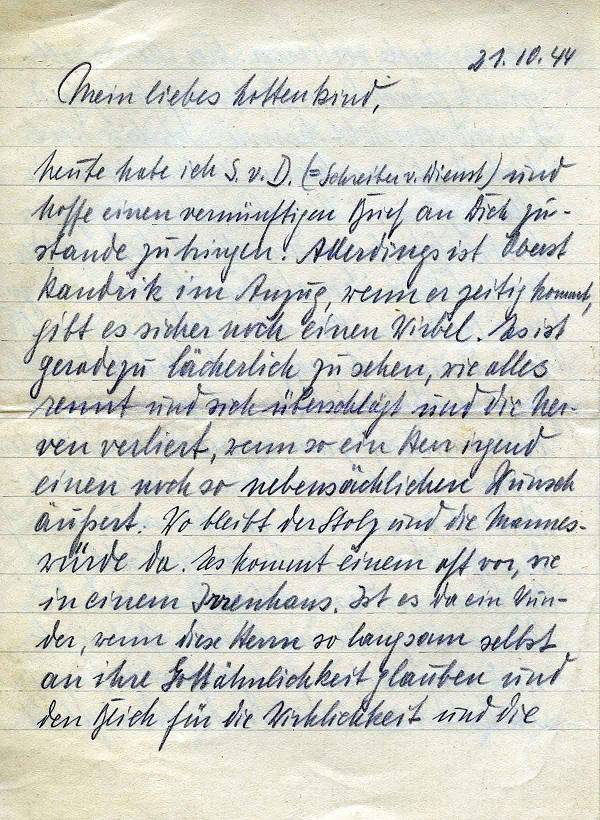 21.10.44
Mein liebes Lottenkind,
heute habe ich S.v.D. (=Schreiber v. Dienst) und
hoffe einen vernünftigen Brief an Dich zu-
stande zu bringen. Allerdings ist Oberst
Handrik im Anzug, wenn er zeitig kommt,
gibt es sicher noch einen Wirbel. Es ist
geradezu lächerlich zu sehen, wie alles
rennt und sich überschlägt und die Ner-
ven verliert, wenn so ein Herr irgend
einen noch so nebensächlichen Wunsch
äußert. Wo bleibt der Stolz und die Mannes-
würde da. Es kommt einem oft vor, wie
in einem Irrenhaus. Ist es da ein Wun-
der, wenn diese Herrn so langsam selbst
an ihre Gottähnlichkeit glauben und
den Blick für die Wirklichkeit und die